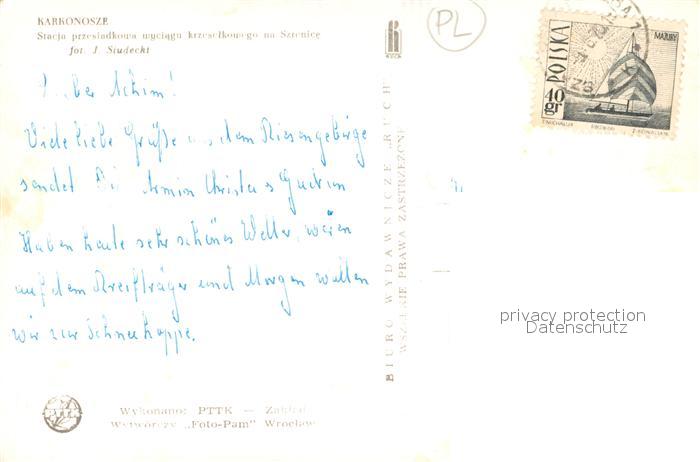 KARKONOSZE
Stacja przesiadkowa wyciągu krzesełkowego na Szrenicę
fot. J. Siudecki
PL
RUCH
POLSKA
MAZURY
40 gr
Lieber Achim!
Viele liebe Grüße aus dem Riesengebirge
sendet Dir Armin Christa Gudrun
Haben heute sehr schönes Wetter, waren
auf dem Reifträger und Morgen wollen
wir zur Schneekoppe.
BIURO WYDAWNICZE „RUCH"
WSZELKIE PRAWA ZASTRZEŻONE
privacy protection
Datenschutz
PTTK
Wykonano: PTTK — Zakład
Wytwórczy „Foto-Pam" Wrocław